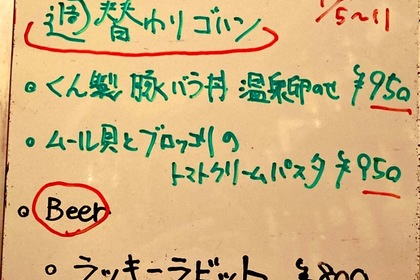 週替わりゴハン
1/5～11
くん製豚バラ丼 温泉卵のせ ¥950
ムール貝とブロッコリの
トマトクリームパスタ ¥950
Beer
ラッキーラビット ¥800